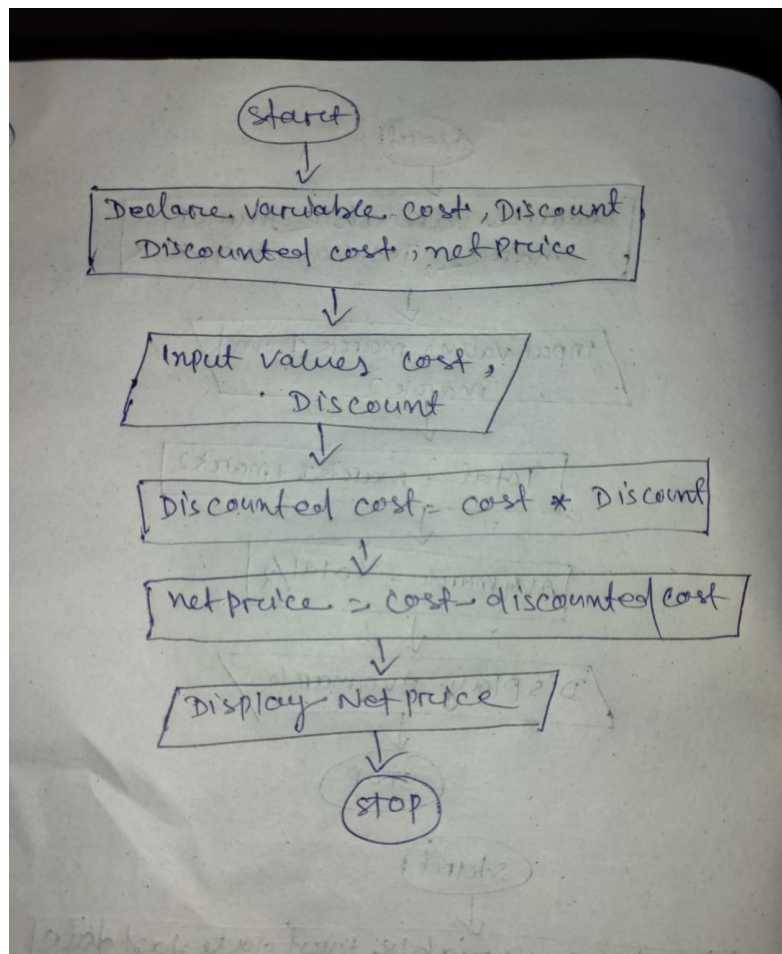 Start
Declare variable cost, Discount
Discounted cost, netprice
Input values cost,
Discount
Discounted cost = cost * Discount
netprice = cost - discounted cost
Display Netprice
STOP